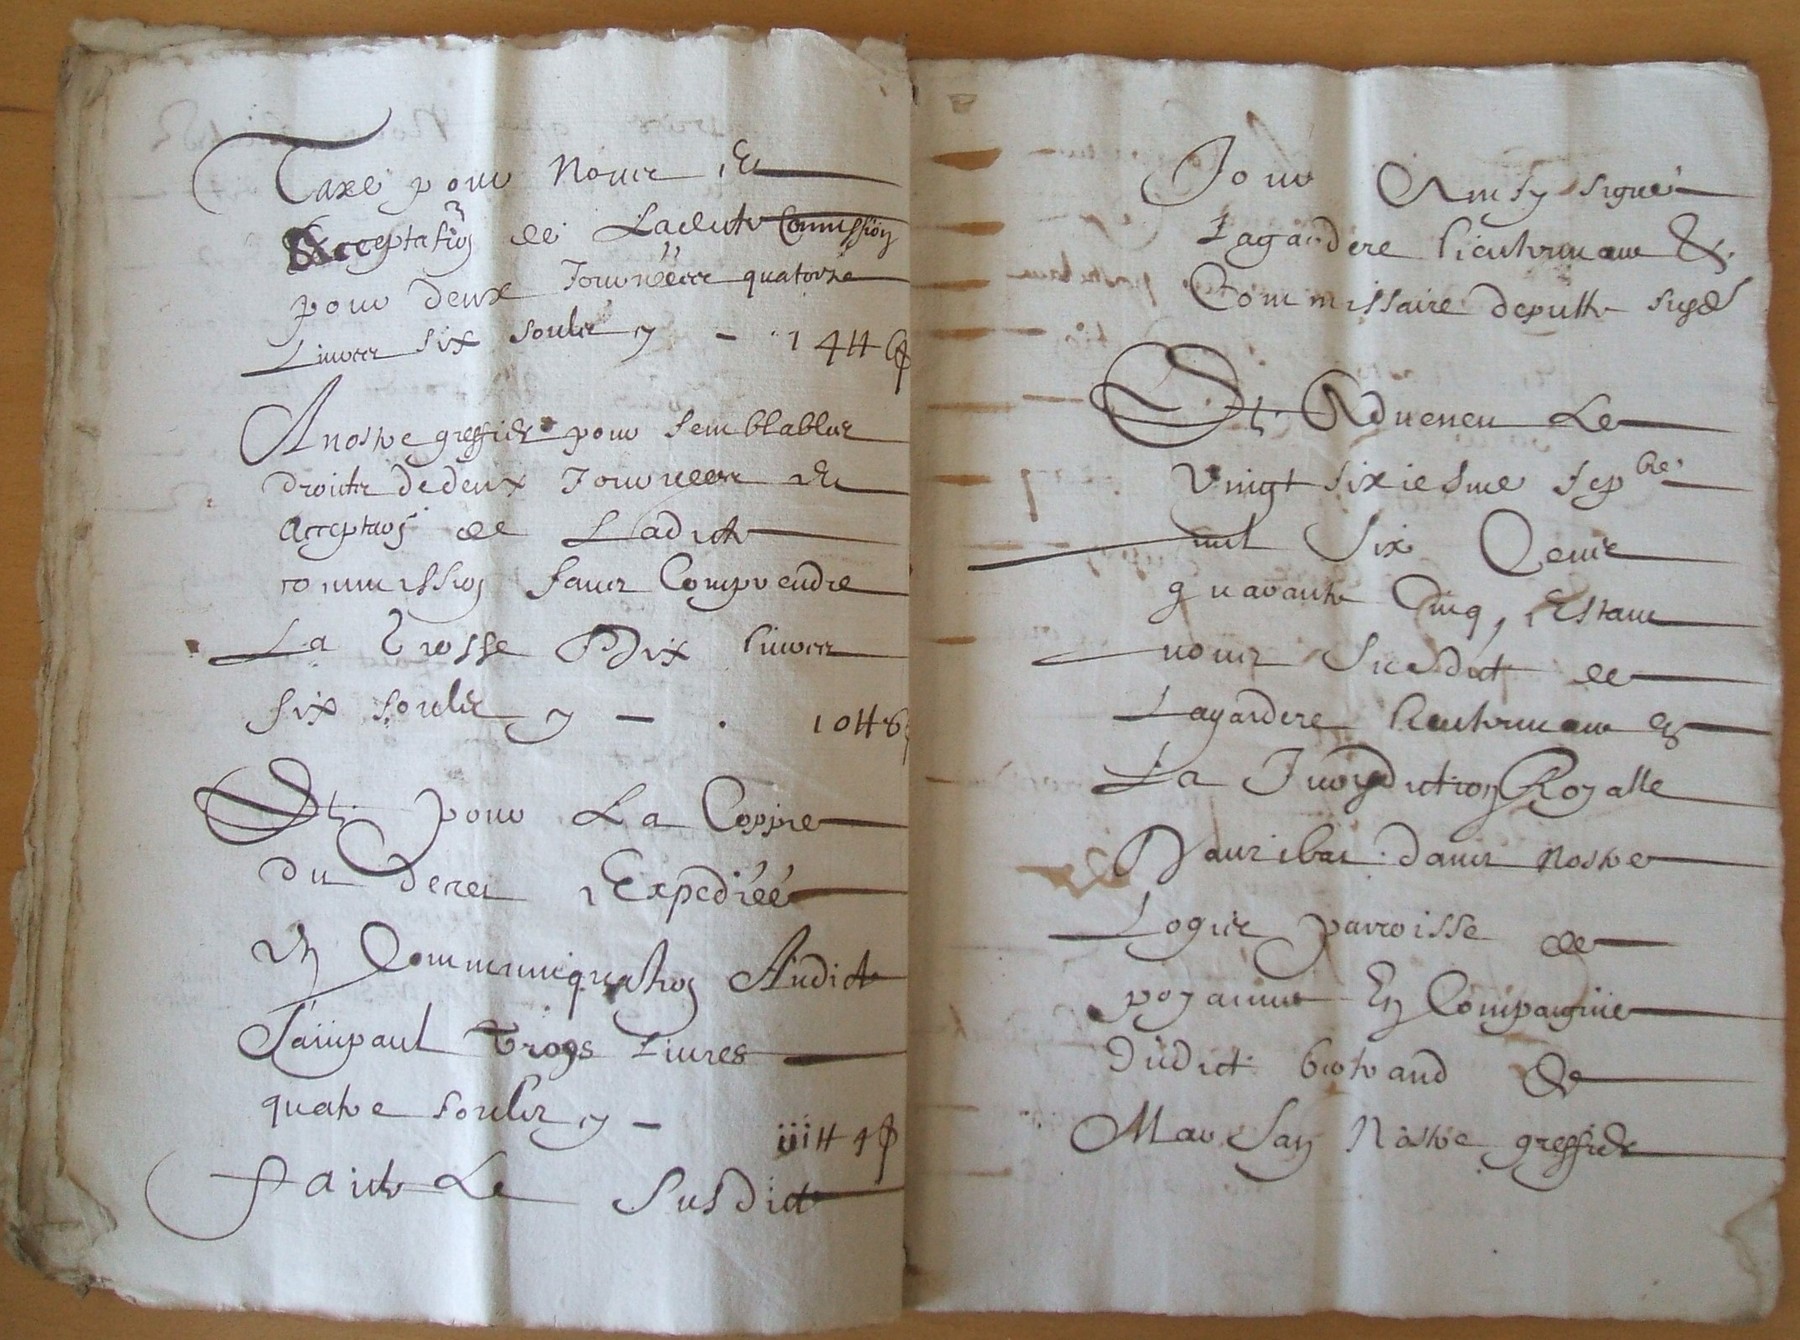 Taxé pour Nous Et
Acceptation de Ladite Commission
pour deux Journeees quatorze
Livres six soulz y - 14 H 6 ß
A nostre greffier pour semblables
droits de deux Journees Et
acceptaon de Ladite
commission sans Comprendre
La Grosse Dix livres
six soulz y - . 10 H 6 ß
Et pour La Coppie
du decret Expediéé
En Communiquation Audict
Sainpaul Troys Livres
quatre soulz y - iii H 4 ß
faict Le Susdict
Jour Ainsy signé
Lagardere lieutenant &
Commissaire deputté susd
Et Adveneu Le
vingt sixiesme sepbre
mil Six Cens
quarante Cinq, Estant
nous Susdict de
Lagardere lieutenant En
La Jurysdiction Royalle
Dauribat dans nostre
Logis parroisse de
poyanne En Compagnie
dudict bertrand de
Marsan Nostre greffier